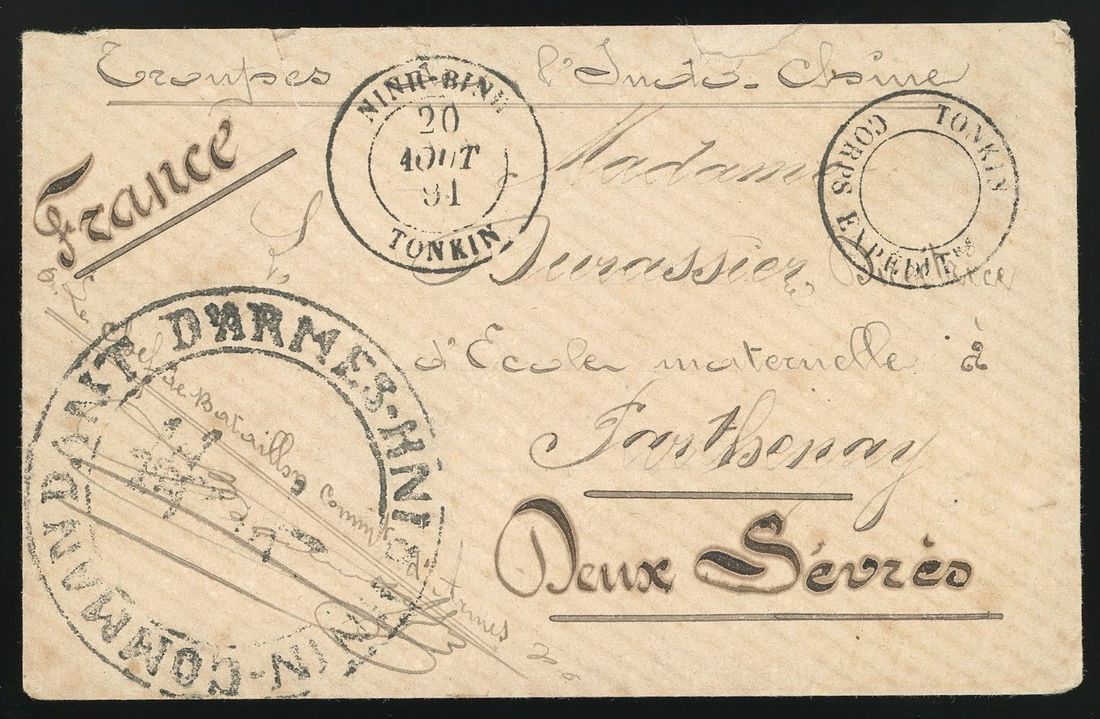 Troupes de l'Indo-Chine
France
NINH-BINH
20
AOUT
91
TONKIN
TONKIN
CORPS EXPEDITre
Madame
Durassier, Directrice
d'Ecole maternelle à
Parthenay
Deux Sèvres
COMMANDANT D'ARMES-NINH-BINH
Le Chef de Bataillon Commt d'Armes